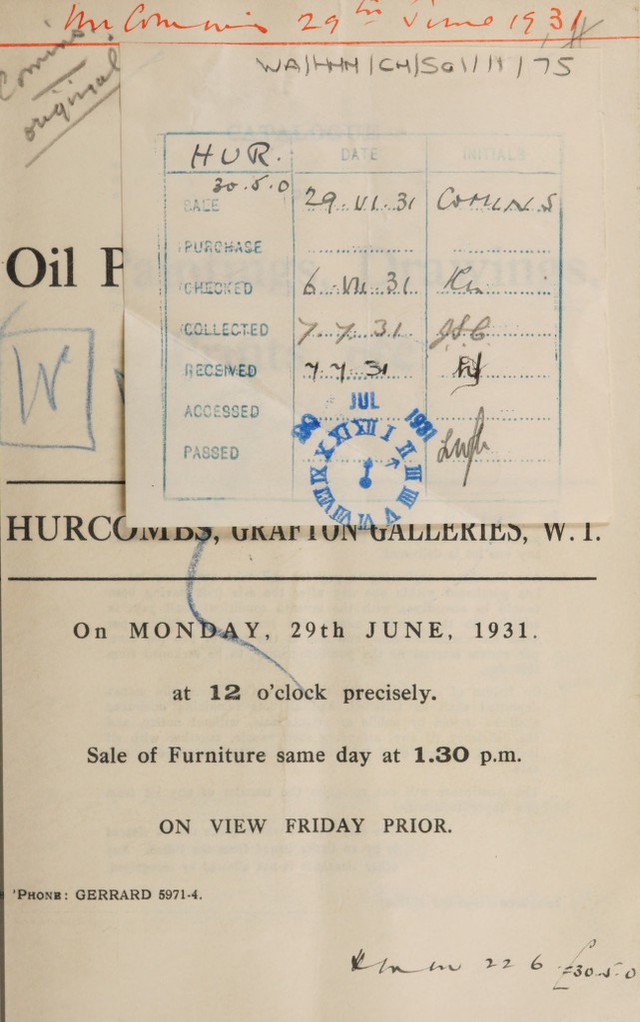 Mr Comins 29th June 1931
Comins
original
WA/HMM/CM/Sal/11/75
HUR. DATE INITIALS
30.5.0
SALE 29.VI.31 COMINS
PURCHASE
CHECKED 6.VII.31
COLLECTED 7.7.31
RECEIVED 7.7.31
ACCESSED
PASSED
JUL 1931
I II III IIII V VI VII VIII IX X XI XII
Oil P
W
HURCOMBS, GRAFTON GALLERIES, W. I.
On MONDAY, 29th JUNE, 1931.
at 12 o'clock precisely.
Sale of Furniture same day at 1.30 p.m.
ON VIEW FRIDAY PRIOR.
'PHONE: GERRARD 5971-4.
22 6 £30.5.0